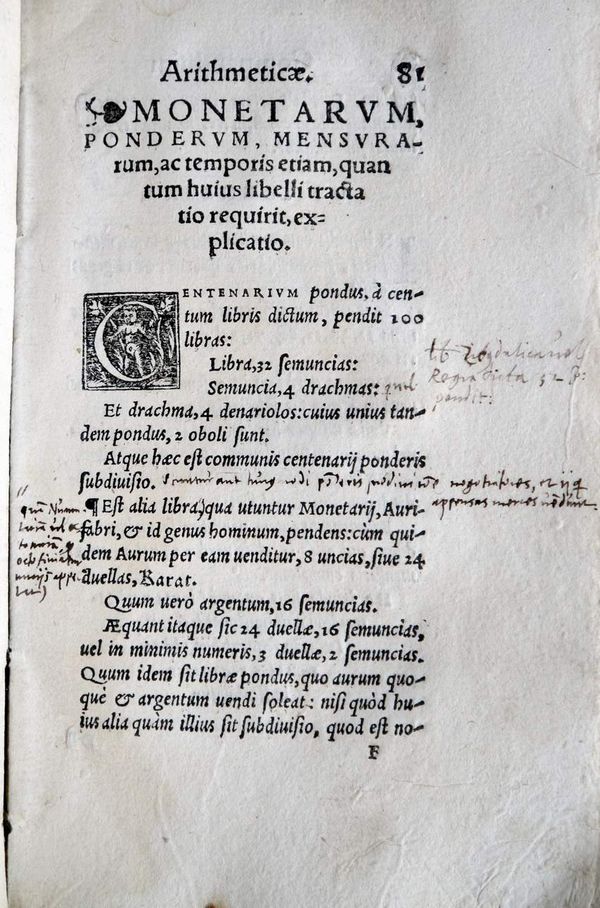 Arithmeticæ. 81
MONETARVM,
PONDERVM, MENSVRA-
rum, ac temporis etiam, quan
tum huius libelli tracta
tio requirit, ex=
plicatio.
CENTENARIVM pondus, à cen-
tum libris dictum, pendit 100
libras:
Libra, 32 semuncias:
Semuncia, 4 drachmas:
Et drachma, 4 denariolos: cuius unius tan-
dem pondus, 2 oboli sunt.
Atque hæc est communis centenarij ponderis
subdiuisio.
¶ Est alia libra, qua utuntur Monetarij, Auri-
fabri, & id genus hominum, pendens: cum qui-
dem Aurum per eam uenditur, 8 uncias, siue 24
duellas, Karat.
Quum uerò argentum, 16 semuncias.
Æquant itaque sic 24 duellæ, 16 semuncias,
uel in minimis numeris, 3 duellæ, 2 semuncias.
Quum idem sit libræ pondus, quo aurum quo-
què & argentum uendi soleat: nisi quòd hu-
ius alia quàm illius sit subdiuisio, quod est no-
F